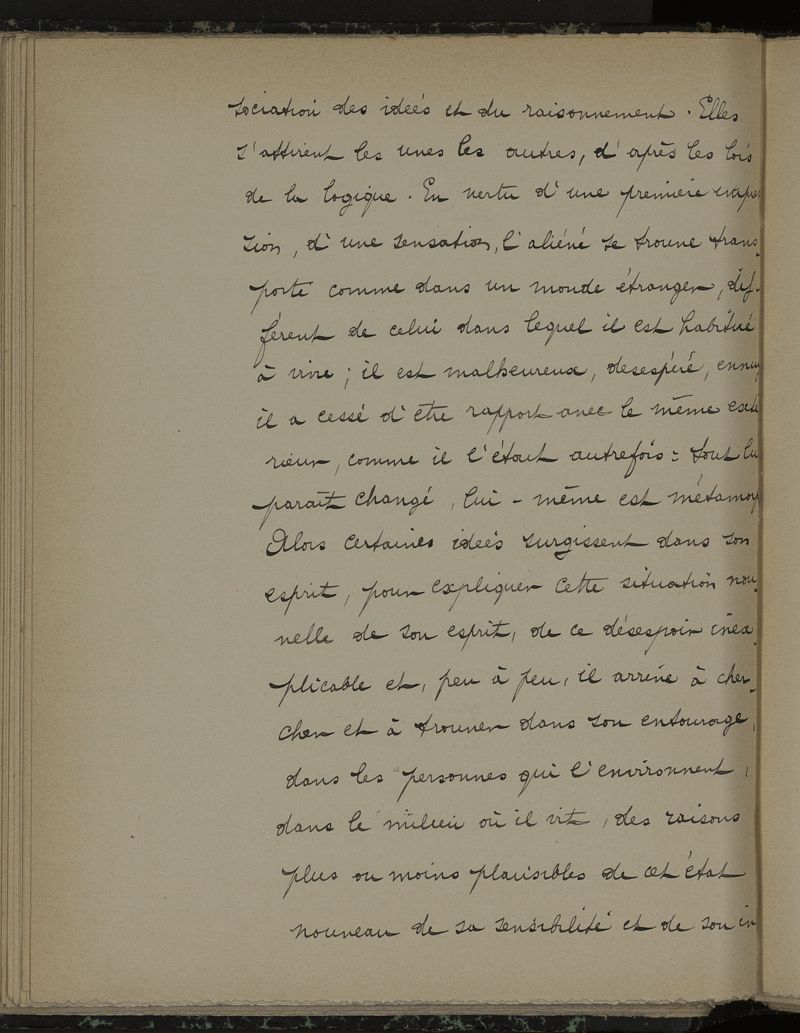 sociation des ideés et du raisonnement. Elles
s'attirent les unes les autres, d'après les lois
de la logique. En vertu d'une première impr
sion, d'une sensation, l'aliéné se trouve trans-
porté comme dans un monde étranger, dif-
férent de celui dans lequel il est habitué
à vivre; il est malheureux, desespéré, ennuy
il a cessé d'être rapport avec le même exté
rieur, comme il l'était autrefois: tout lu
paraît changé, lui-même est métamorp
Alors certaines ideés surgissent dans son
esprit, pour expliquer cette situation nou-
velle de son esprit, de ce désespoir inex-
plicable et, peu à peu, il arrive à cher-
cher et à trouver dans son entourage,
dans les personnes qui l'environnent,
dans le milieu où il vit, des raisons
plus ou moins plausibles de cet état
nouveau de sa sensibilité et de son in